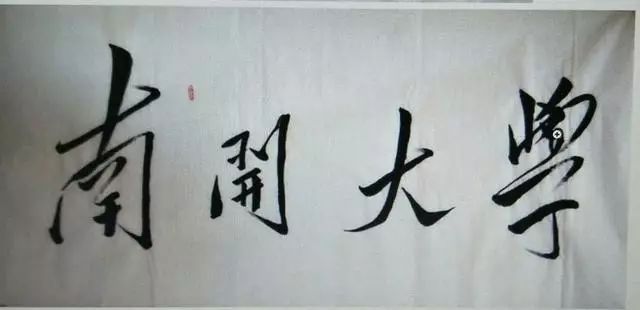 南開大學